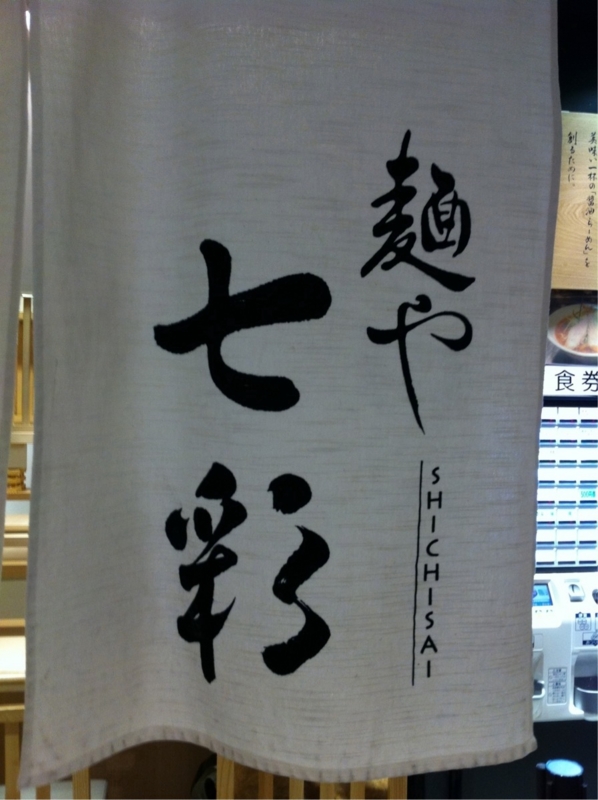 美味い一杯の「醤油らーめん」を
創るために。
麺や
七彩
SHICHISAI
食券